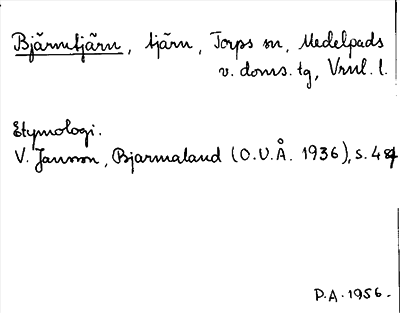 Bjärmtjärn, tjärn, Torps sn, Medelpads
v. doms. tg, Vrnl. l.
Etymologi.
V. Jansson, Bjarmaland (O.U.Å. 1936), s. 48f
P.A. 1956.